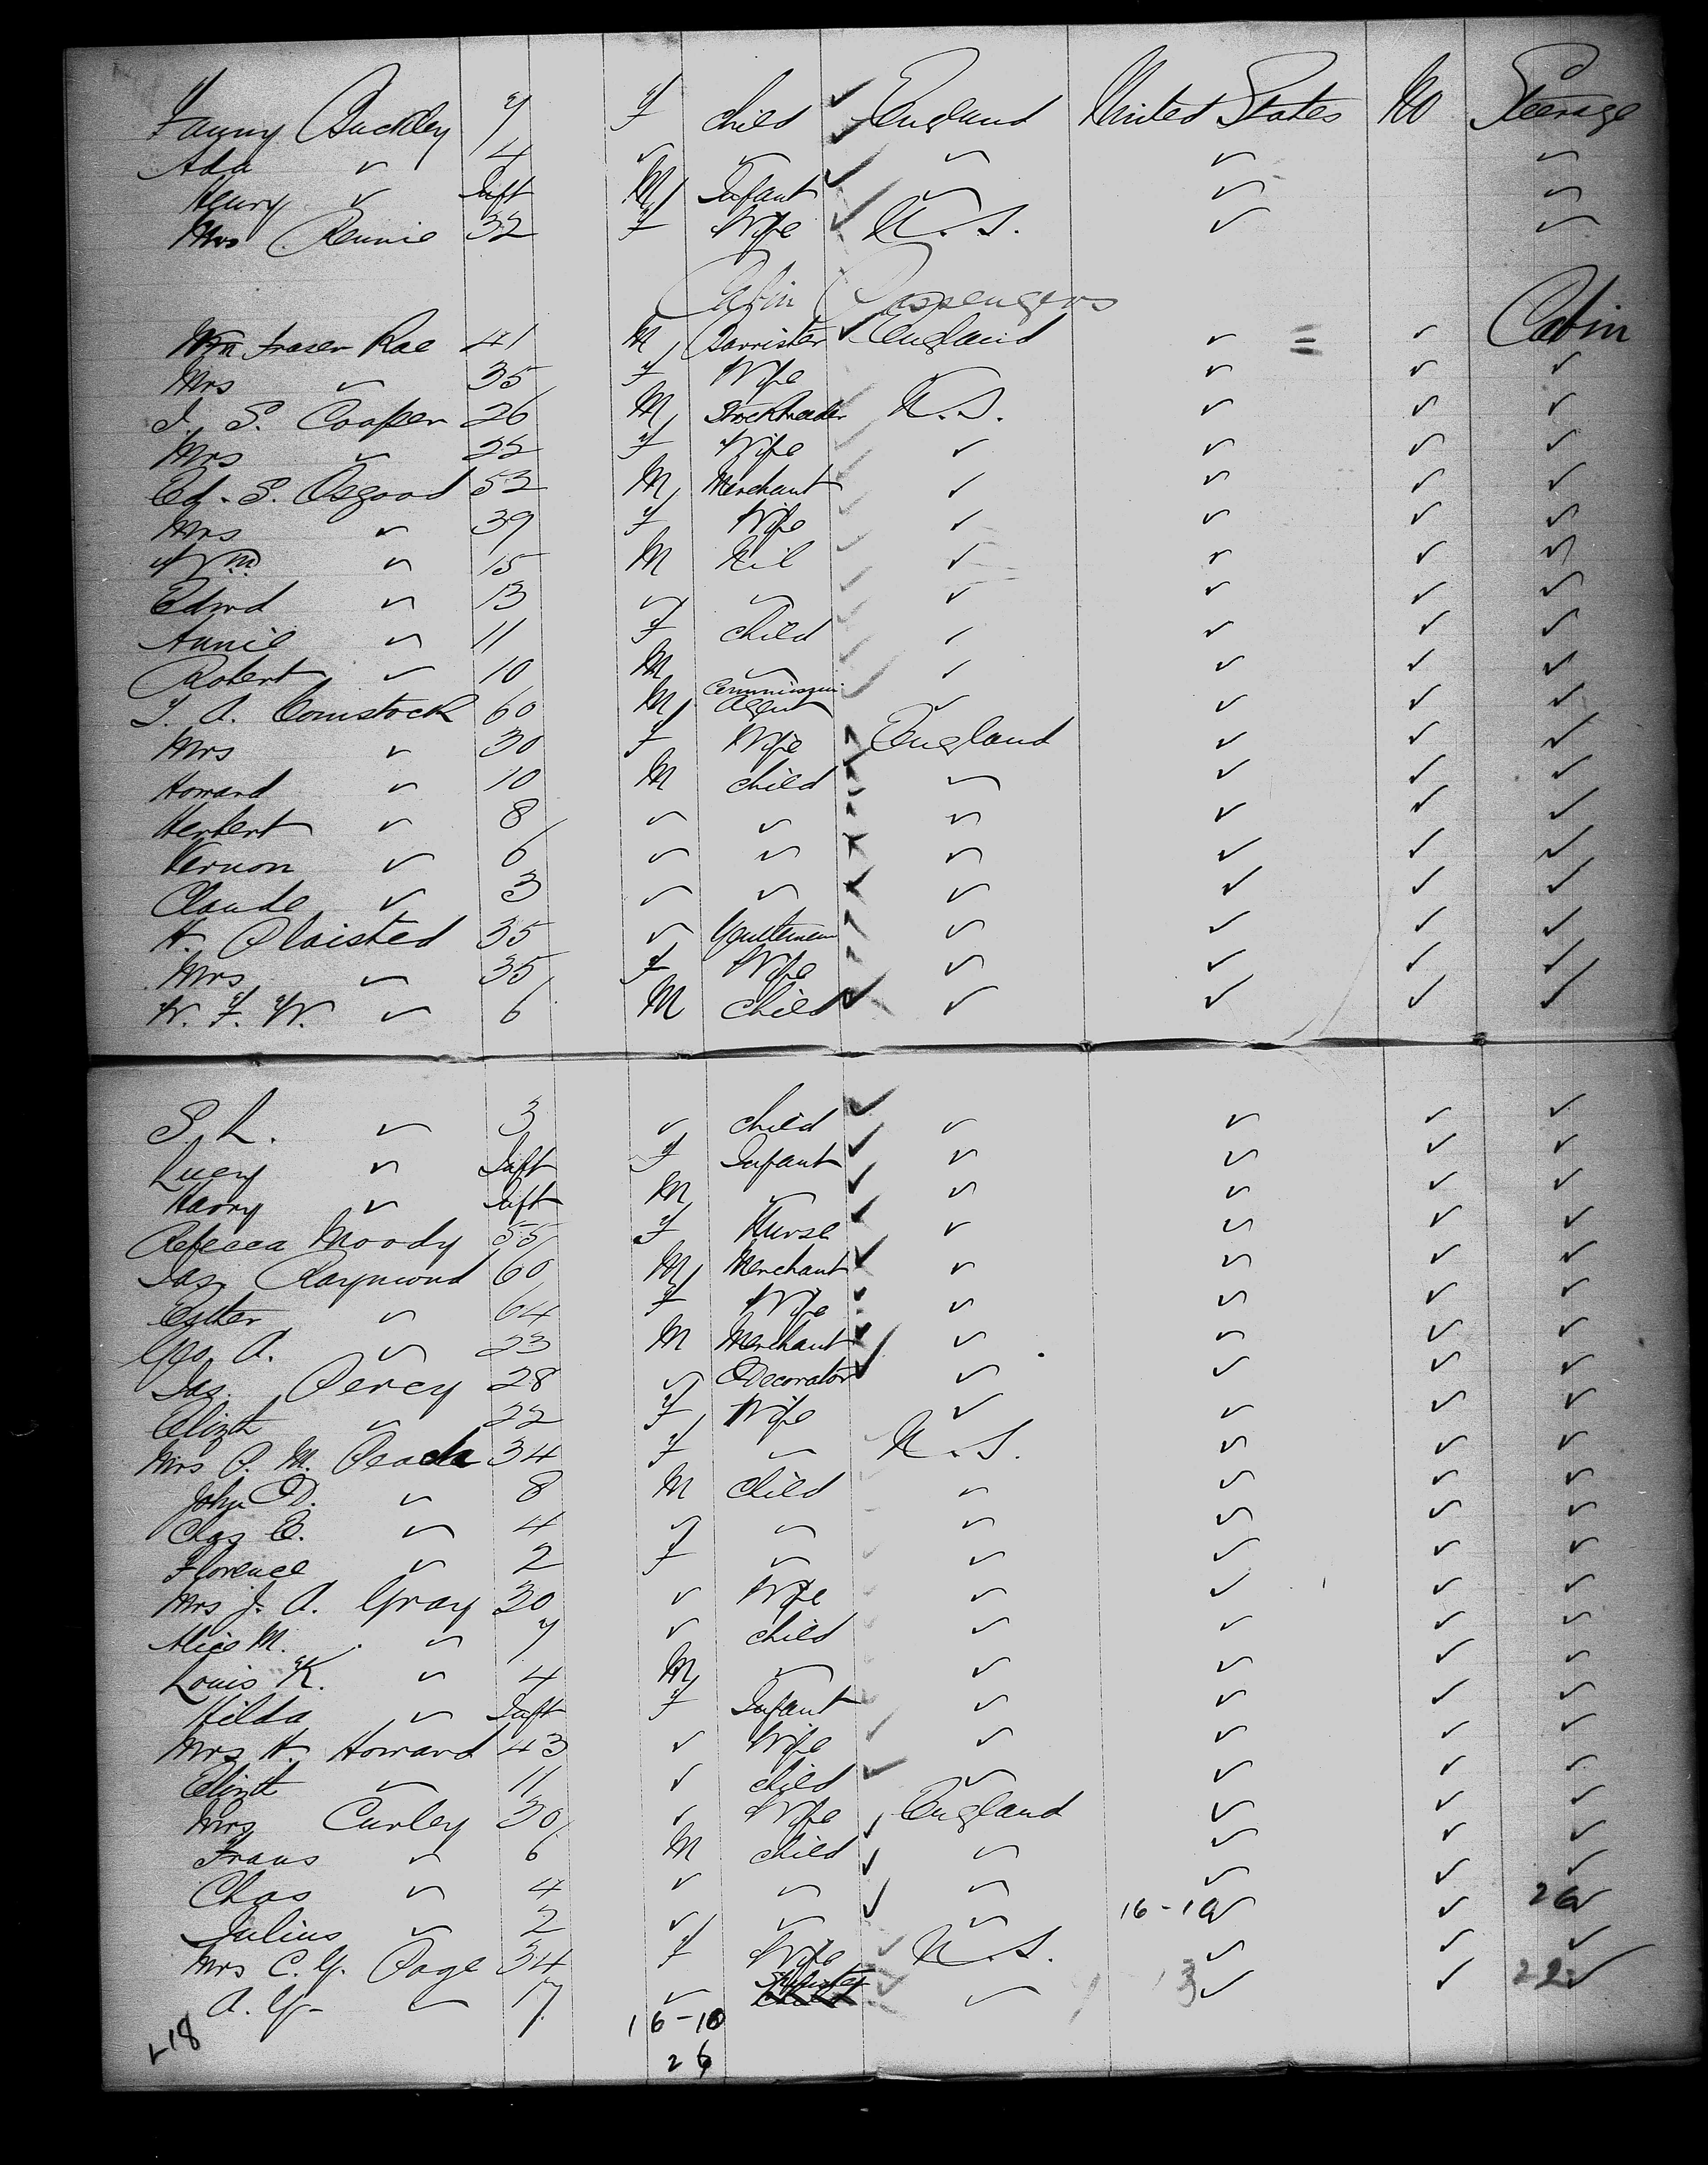 Fanny Buckley 7 F child ✓ England United States No Steerage
Ada ✓ 4 ✓ ✓ ✓ ✓ ✓ ✓
Henry ✓ Inft M Infant ✓ ✓ ✓ ✓
Mrs Rennie 32 F Wife ✓ U.S. ✓ ✓
Cabin Passengers
Wm Fraser Rae 41 M Barrister ✓ England ✓ = ✓ Cabin
Mrs ✓ 35 F Wife ✓ ✓ ✓
S. Cooper 26 M U.S. ✓ ✓ ✓
Mrs ✓ 22 F Wife ✓ ✓ ✓ ✓
Ed. S. Osgood 52 M Merchant ✓ ✓ ✓ ✓
Mrs ✓ 39 F Wife ✓ ✓ ✓ ✓
Wm ✓ 15 M Nil ✓ ✓ ✓ ✓
Edwd ✓ 13 ✓ ✓ ✓ ✓ ✓ ✓
Annie ✓ 11 F child ✓ ✓ ✓ ✓
Robert ✓ 10 M ✓ ✓ ✓ ✓ ✓
A. Comstock 60 M Commission Agent ✓ ✓ ✓ ✓
Mrs ✓ 30 F Wife England ✓ ✓ ✓
Howard ✓ 10 M child ✓ ✓ ✓ ✓
Herbert ✓ 8 ✓ ✓ ✓ ✓ ✓ ✓
Vernon ✓ 6 ✓ ✓ ✓ ✓ ✓ ✓
Claude ✓ 3 ✓ ✓ ✓ ✓ ✓ ✓
H. Plaisted 35 ✓ Gentleman ✓ ✓ ✓ ✓
Mrs ✓ 35 F Wife ✓ ✓ ✓ ✓
W. F. W. ✓ 6 M Child ✓ ✓ ✓ ✓ ✓
S. L. ✓ 3 ✓ child ✓ ✓ ✓ ✓ ✓
Lucy ✓ Inft F Infant ✓ ✓ ✓ ✓ ✓
Harry ✓ Inft M ✓ ✓ ✓ ✓ ✓ ✓
Rebecca Moody 55 F Nurse ✓ ✓ ✓ ✓ ✓
Jas. Raymond 60 M Merchant ✓ ✓ ✓ ✓ ✓
Esther ✓ 64 F Wife ✓ ✓ ✓ ✓ ✓
Geo. A. ✓ 23 M Merchant ✓ ✓ ✓ ✓ ✓
Jas. Percy 28 ✓ Decorator ✓ ✓ ✓ ✓ ✓
Elizth ✓ 22 F Wife ✓ ✓ ✓ ✓
Mrs P. M. 34 F ✓ U.S. ✓ ✓ ✓
John D. ✓ 8 M Child ✓ ✓ ✓ ✓
Chas E. ✓ 4 ✓ ✓ ✓ ✓ ✓ ✓
Florence ✓ 2 F ✓ ✓ ✓ ✓ ✓
Mrs J. A. Gray 30 ✓ Wife ✓ ✓ ✓ ✓
Alice M. ✓ 7 ✓ child ✓ ✓ ✓ ✓
Louis K. ✓ 4 M ✓ ✓ ✓ ✓ ✓
Hilda ✓ Inft F Infant ✓ ✓ ✓ ✓
Mrs H. Howard 43 ✓ Wife ✓ ✓ ✓ ✓ ✓
Elizth ✓ 11 ✓ child ✓ ✓ ✓ ✓ ✓
Mrs Curley 30 ✓ Wife ✓ England ✓ ✓ ✓
Frans ✓ 6 M child ✓ ✓ ✓ ✓ ✓
Chas ✓ 4 ✓ ✓ ✓ ✓ ✓ ✓ ✓
Julius ✓ 2 ✓ ✓ ✓ ✓ 16-10 ✓ ✓ 26 ✓
Mrs C. G. Page 34 F Wife ✓ U.S. ✓ ✓ ✓
A. G. ✓ 17 ✓ Spinster ✓ ✓ 3 ✓ ✓ 22 ✓
16-10
26